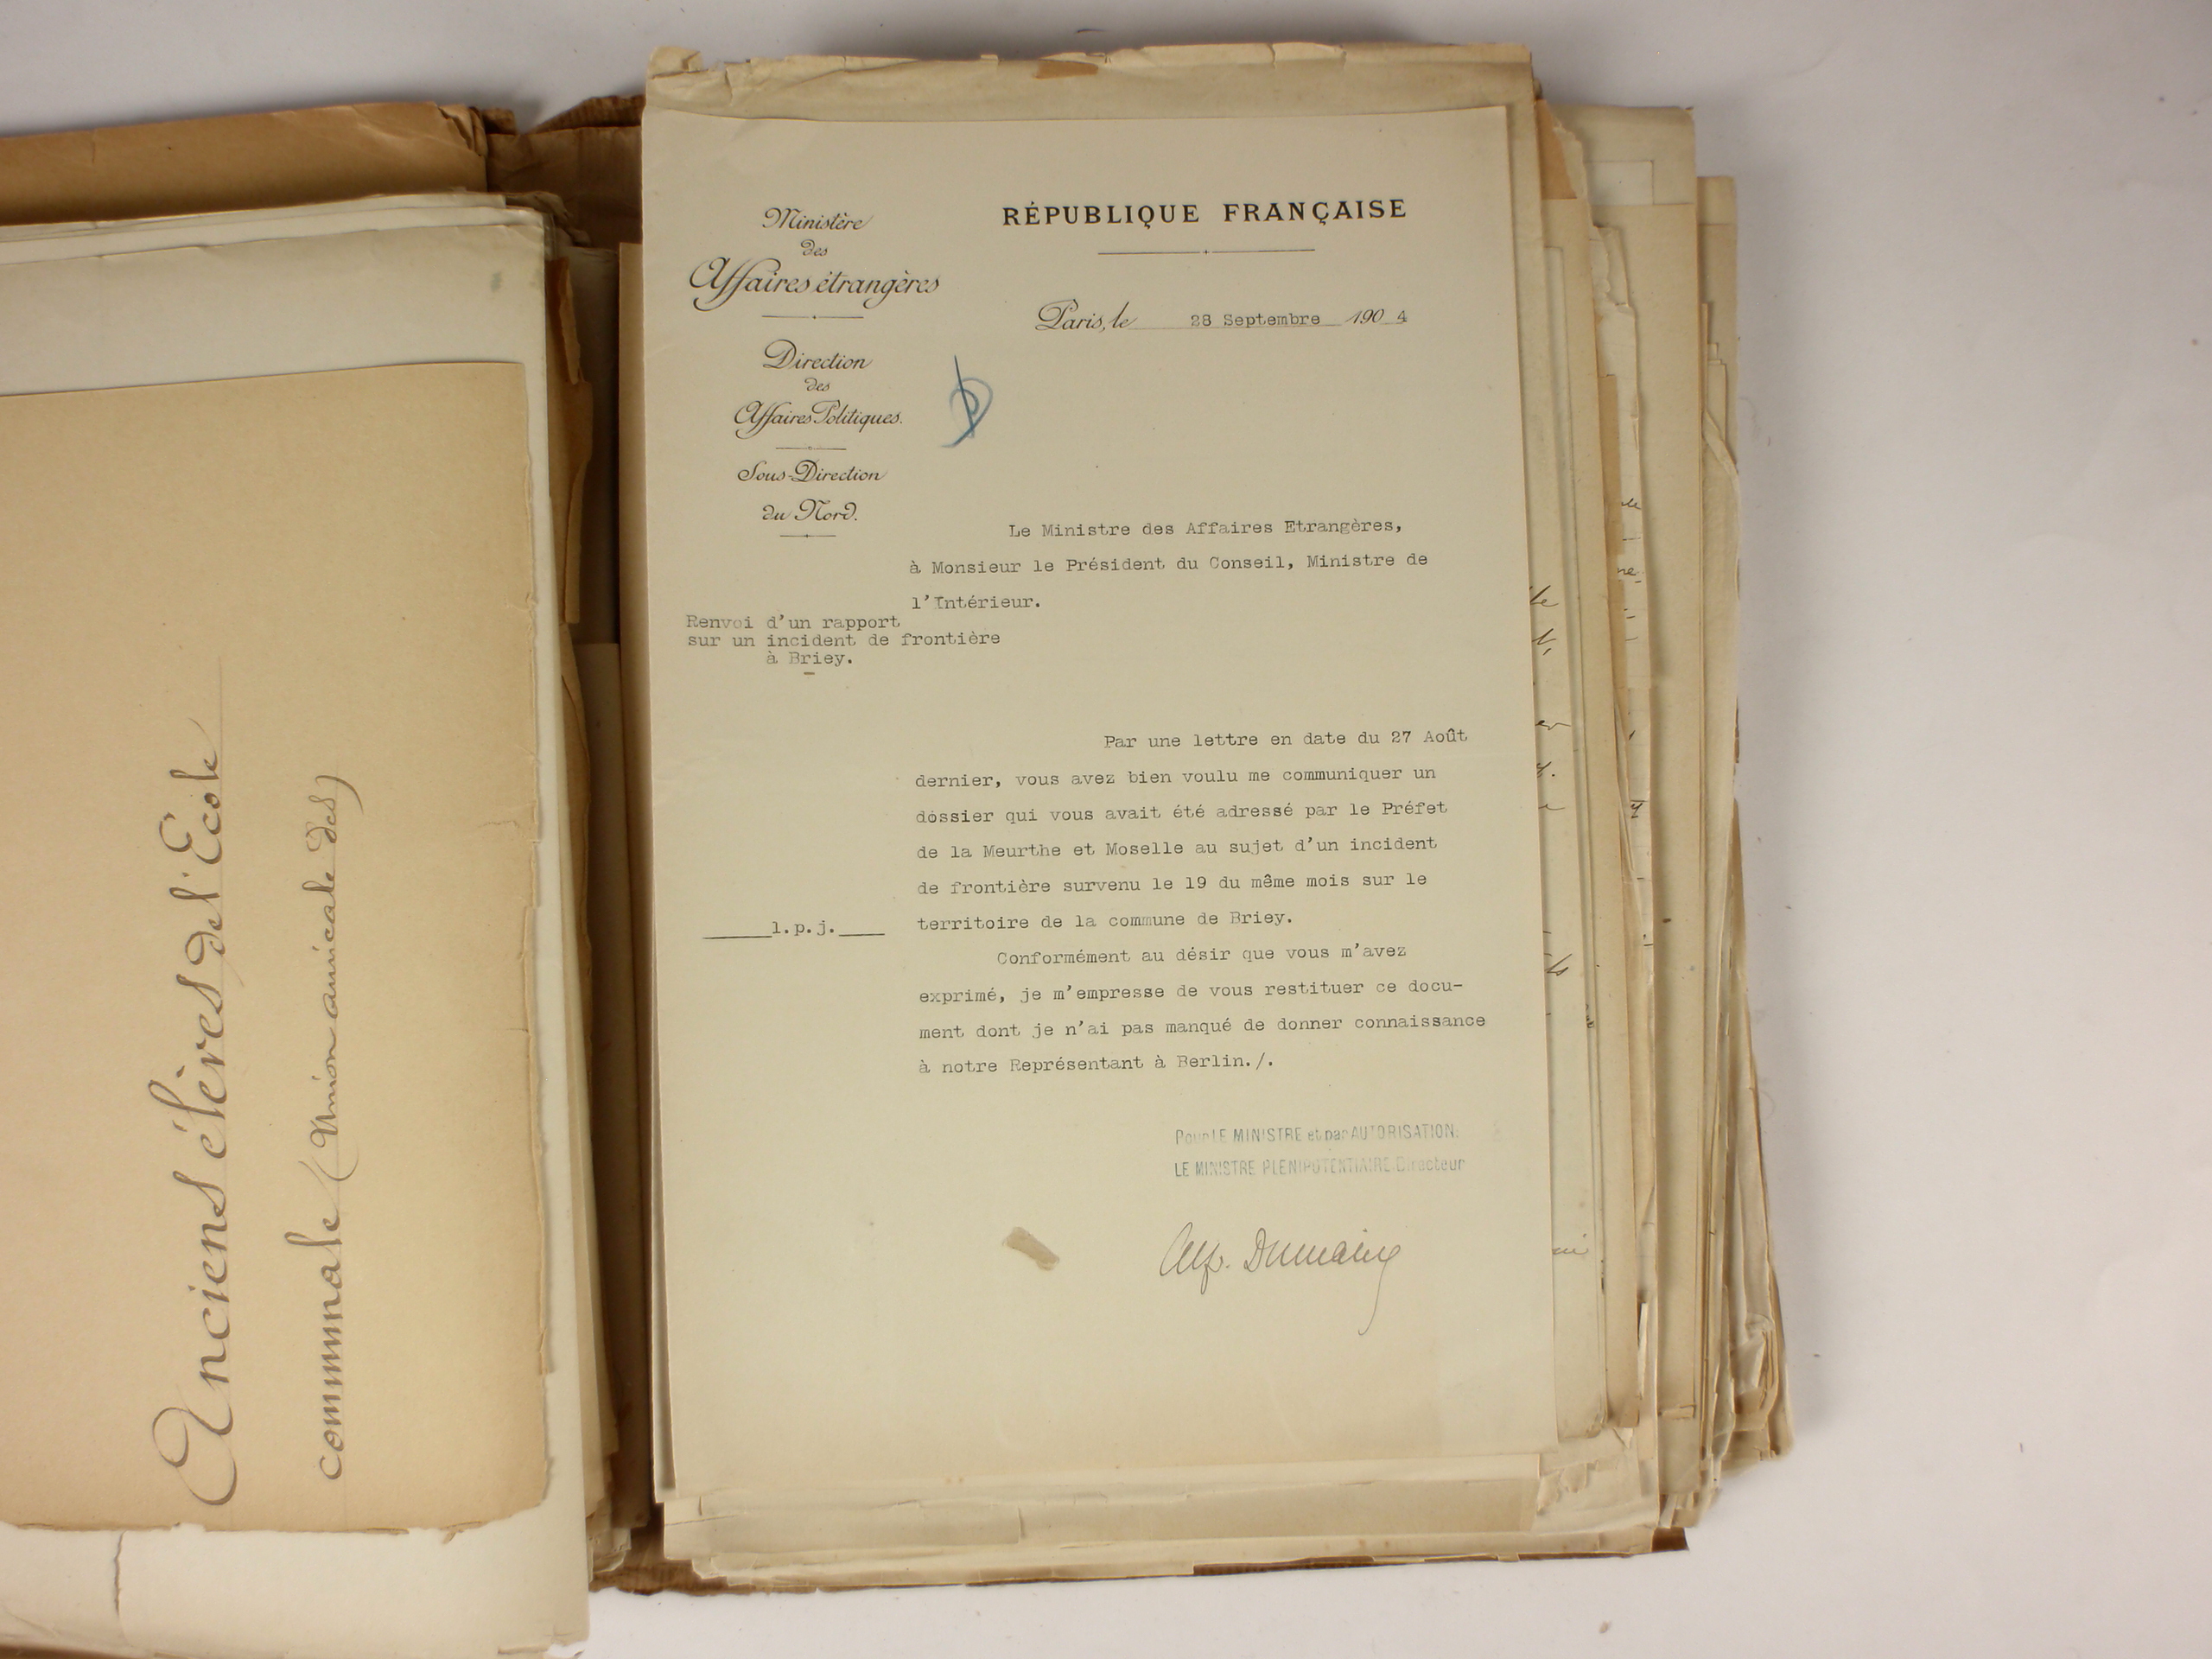 Anciens élèves de l'Ecole
communale (Union amicale des)
Ministère
des
Affaires étrangères
Direction
des
Affaires Politiques.
Sous-Direction
du Nord.
RÉPUBLIQUE FRANÇAISE
Paris, le 28 Septembre 1904
Le Ministre des Affaires Etrangères,
à Monsieur le Président du Conseil, Ministre de
l'Intérieur.
Renvoi d'un rapport
sur un incident de frontière
à Briey.
Par une lettre en date du 27 Août
dernier, vous avez bien voulu me communiquer un
dossier qui vous avait été adressé par le Préfet
de la Meurthe et Moselle au sujet d'un incident
de frontière survenu le 19 du même mois sur le
territoire de la commune de Briey.
1.p.j.
Conformément au désir que vous m'avez
exprimé, je m'empresse de vous restituer ce docu-
ment dont je n'ai pas manqué de donner connaissance
à notre Représentant à Berlin./.
Pour LE MINISTRE et par AUTORISATION:
LE MINISTRE PLENIPOTENTIAIRE Directeur
Alf. Dumaine